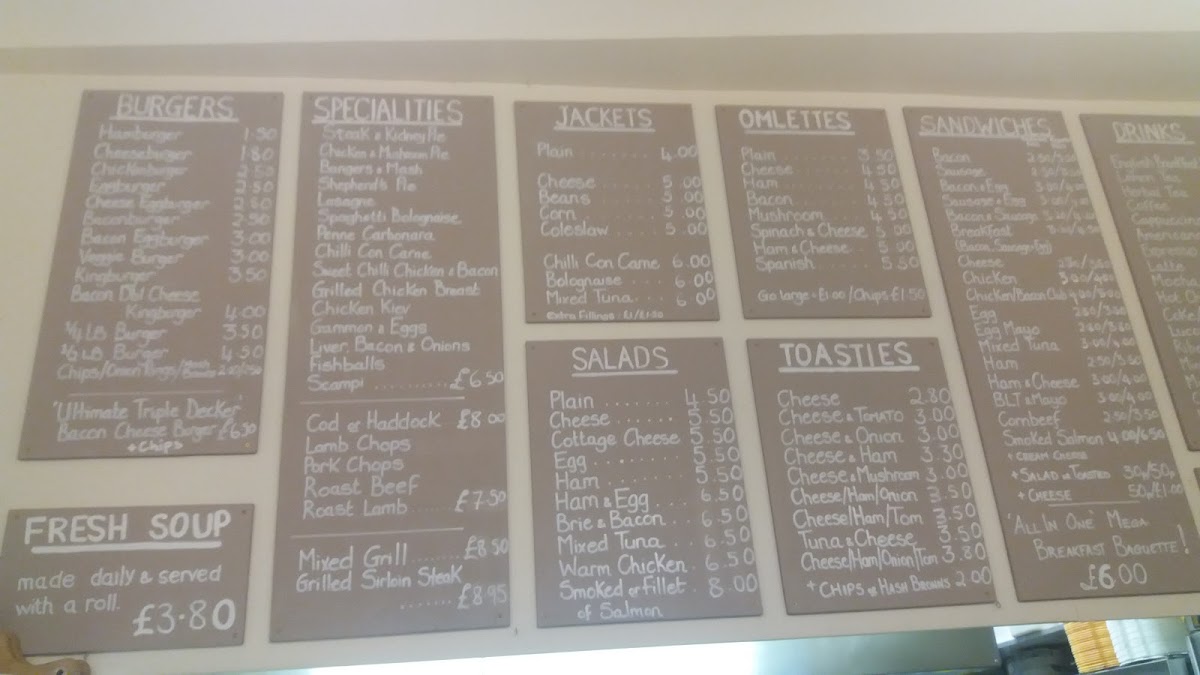 BURGERS
Hamburger 1.50
Cheeseburger 1.80
Chickenburger
Eggburger 2.50
Cheese Eggburger 2.80
Baconburger 2.50
Bacon Eggburger 3.00
Veggie Burger 3.00
Kingburger 3.50
Bacon Dbl Cheese
Kingburger 4.00
1/4 LB Burger 3.50
1/2 LB Burger 4.50
Chips/Onion Rings/
'Ultimate Triple Decker'
Bacon Cheese Burger £6.50
+ Chips
FRESH SOUP
made daily & served
with a roll.
£3.80
SPECIALITIES
Steak & Kidney Pie
Chicken & Mushroom Pie
Bangers & Mash
Shepherd's Pie
Lasagne
Spaghetti Bolognaise
Penne Carbonara
Chilli Con Carne
Sweet Chilli Chicken & Bacon
Grilled Chicken Breast
Chicken Kiev
Gammon & Eggs
Liver, Bacon & Onions
Fishballs
Scampi .......... £6.50
Cod or Haddock £8.00
Lamb Chops
Pork Chops
Roast Beef
Roast Lamb ..... £7.50
Mixed Grill ....... £8.50
Grilled Sirloin Steak
....... £8.95
JACKETS
Plain ........ 4.00
Cheese ...... 5.00
Beans ...... 5.00
Corn ...... 5.00
Coleslaw .... 5.00
Chilli Con Carne 6.00
Bolognaise ... 6.00
Mixed Tuna ... 6.00
Extra Fillings : £1/£1.50
SALADS
Plain ....... 4.50
Cheese ...... 5.50
Cottage Cheese 5.50
Egg ........ 5.50
Ham ....... 5.50
Ham & Egg ... 6.50
Brie & Bacon ... 6.50
Mixed Tuna .. 6.50
Warm Chicken . 6.50
Smoked or Fillet . 8.00
of Salmon
OMLETTES
Plain ....... 3.50
Cheese ...... 4.50
Ham ....... 4.50
Bacon ...... 4.50
Mushroom .... 4.50
Spinach & Cheese 5.00
Ham & Cheese ... 5.00
Spanish ..... 5.50
Go large = £1.00/Chips £1.50
TOASTIES
Cheese 2.80
Cheese & Tomato 3.00
Cheese & Onion 3.00
Cheese & Ham 3.30
Cheese & Mushroom 3.00
Cheese/Ham/Onion 3.50
Cheese/Ham/Tom 3.50
Tuna & Cheese 3.50
Cheese/Ham/Onion/Tom 3.80
+ Chips or Hash Browns 2.00
SANDWICHES
Bacon 2.50/3.50
Sausage 2.50/3.50
Bacon & Egg 3.00/4.00
Sausage & Egg 3.00/4.00
Bacon & Sausage 3.00/4.00
Breakfast
(Bacon, Sausage, Egg)
Cheese
Chicken 3.00/4.00
Chicken/Bacon Club 4.00/5.00
Egg 2.80/3.80
Egg Mayo 2.80/3.80
Mixed Tuna 3.00/4.00
Ham 2.50/3.50
Ham & Cheese 3.00/4.00
BLT & Mayo 3.00/4.00
Cornbeef 2.50/3.50
Smoked Salmon 4.00/6.50
+ Cream Cheese
+ Salad or Toasted 30p/50p
+ Cheese 50p/£1.00
'All In One' Mega
Breakfast Baguette!
£6.00
DRINKS
English Breakfast
Lemon Tea
Herbal Tea
Coffee
Cappuccino
Americano
Espresso
Latte
Mocha
Hot
Coke